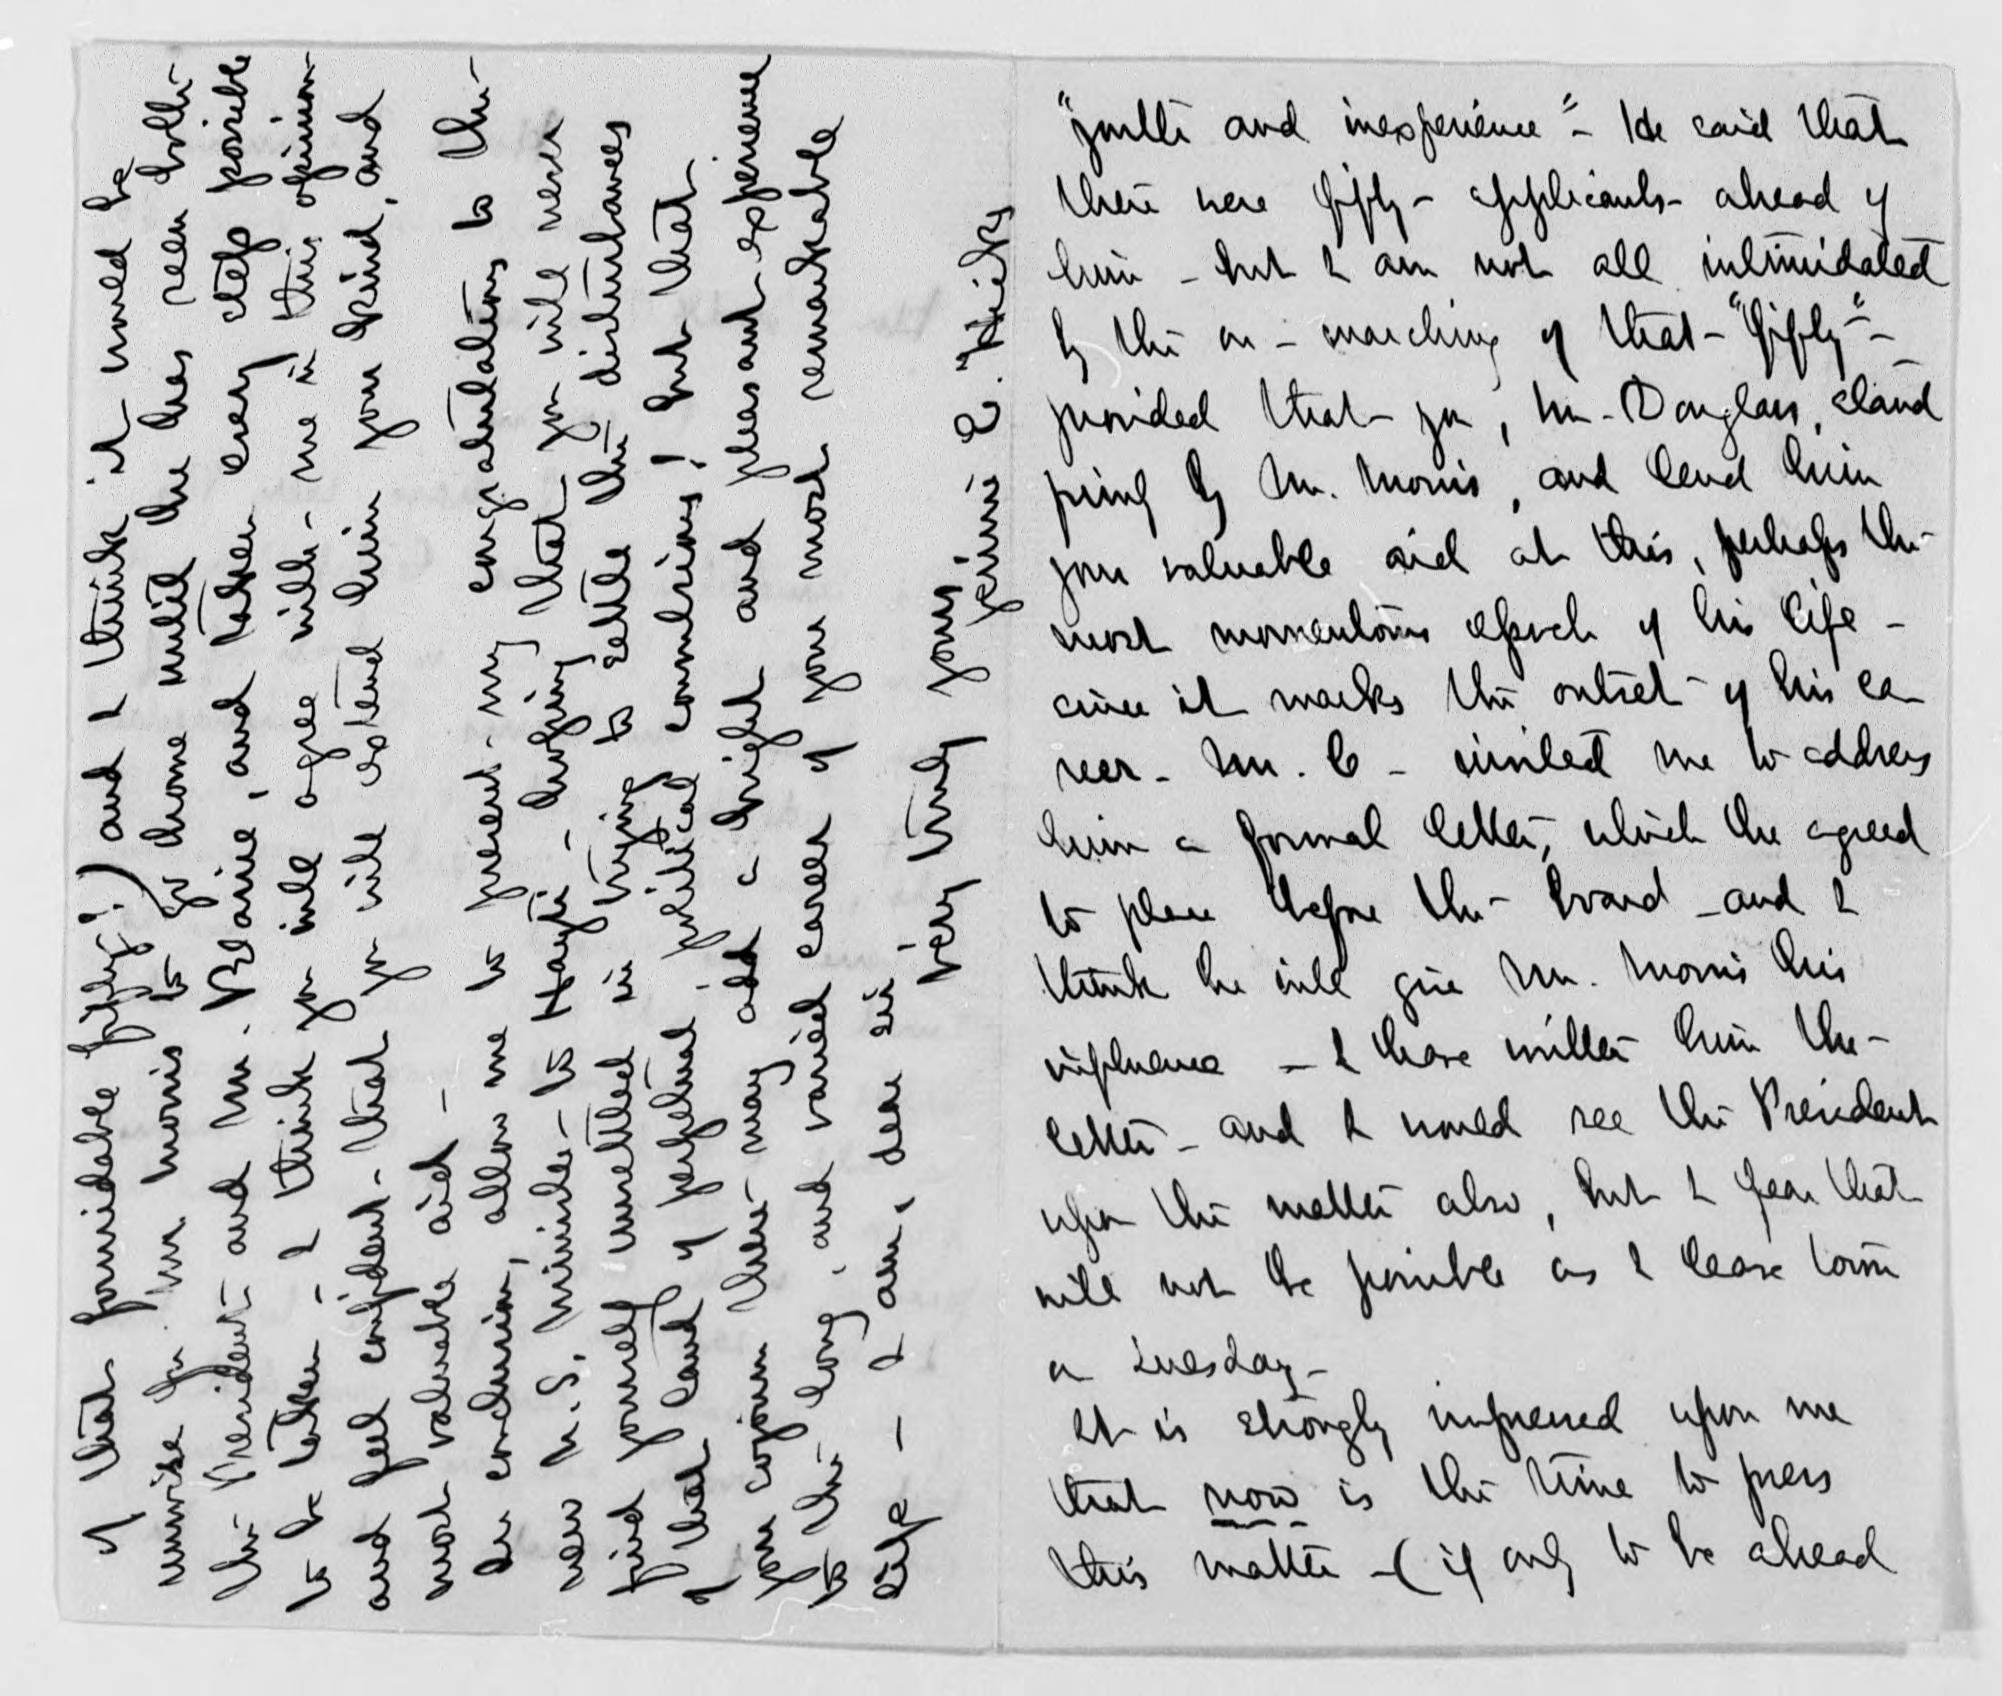 "youth and inexperience" - He said that
there were fifty - applicants - ahead of
him - but I am not all intimidated
by the on - marching of that - "fifty" -
provided that - you, Mr. Douglass, stand
firmly by Mr. Morris, and lend him
your valuable aid at this, perhaps the
most momentous epoch of his life -
since it marks the outset - of his ca
reer - Mr. C - invited me to address
him a formal letter, which he agreed
to place before the - board - and I
think he will give Mr. Morris his
influence - I have written him the -
letter - and I would see the President
upon the matter also, but I fear that
will not be possible as I leave town
on Tuesday -
It is strongly impressed upon me
that now is the time to press
this matter - (if only to be ahead
of that formidable fifty!) and I think it would be
unwise for Mr. Morris to go home until he has seen both -
the President and Mr. Blaine, and taken every step possible
to be taken - I think you will agree with - me in this opinion -
and feel confident - that you will extend him your kind, and
most valuable aid -
In conclusion, allow me to present - my congratulations to the -
new U.S. Minister - to Hayti - hoping that you will never
find yourself unsettled in trying to settle the disturbances
of that land of perpetual political convulsions! but that
your sojourn there - may add a bright and pleasant experience
to the long, and varied career of your most remarkable
life - I am, dear sir,
Very truly yours,
Fannie E. Hicks